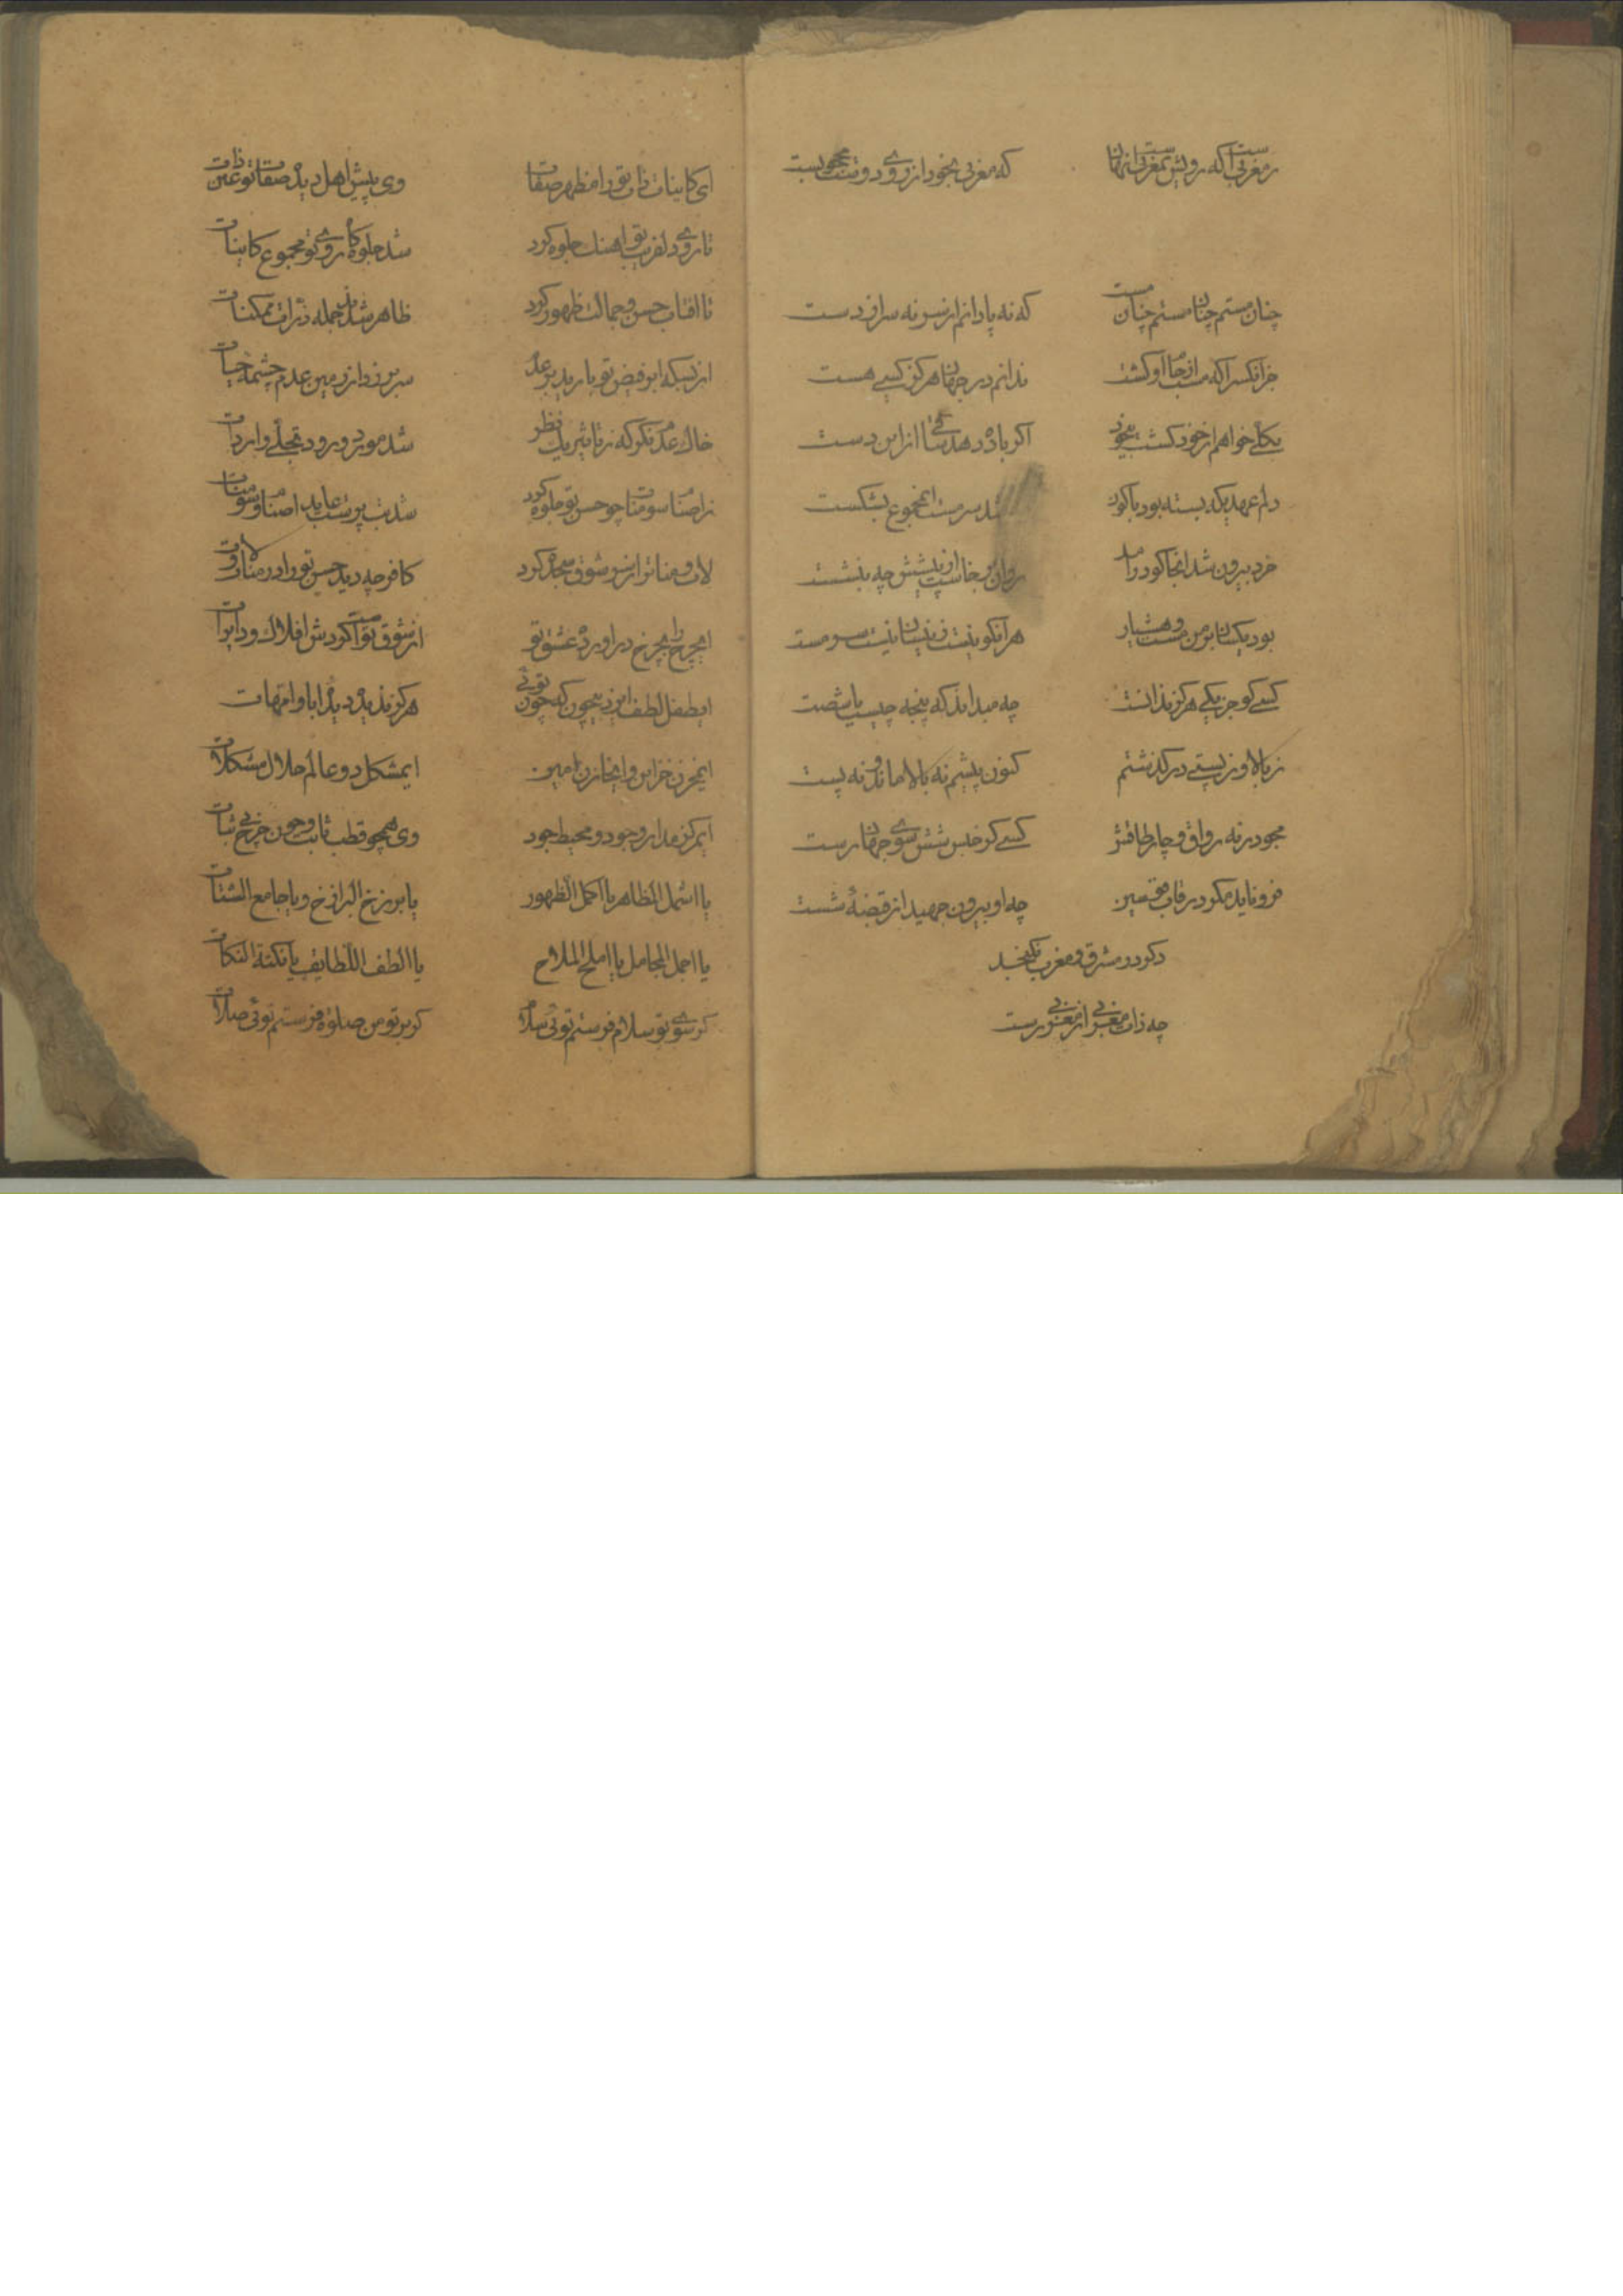 ز مغربیست آنکه رویش بمغربی از نهانست که مغربی بخود از روی دوست محجوبست
چنان مستم چنان مستم چنان مست که نه پا دانم از سر نه سر از دست
جز آنکس را که مست از جام او گشت ندانم در جهان هرگز کسی هست
بکلی خواهم از خود گشت بیخود اگر باده دهد ساقی از این دست
دلم عهدیکه بسته بود با کون شد سرمست انمجموع بشکست
خرد بیرون شد انجا کو درامد روان برخاست از پیشش چه بنشست
بود یکسان بر من مست و هشیار هر آنکو نیست زینسان نیست سرمست
کسی کو جز یکی هرگز ندانست چه میداند که پنجه چیست یا شصت
ز بالا و ز پستی در گذشتم کنون پیشم نه بالا ماند و نه پست
مجو در نه رواق و چار طاقش کسی کز حبس شش سوی جهان رست
فرو ناید مگر در قاب قوسین چه او بیرون جهید از قبضهٔ شست
دگر در مشرق و مغرب نگنجد
چه ذات مغربی از مغربی رست
ای کاینات ذات تو را مظهر صفات وی پیش اهل دیده صفات تو عین ذات
تا روی دلفریب تو اهنک جلوه کرد شد جلوه کاه روی تو مجموع کاینات
تا افتاب حسن و جمالت ظهور کرد ظاهر شدند جمله ذرات ممکنات
از بسکه ابر فیض تو بارید بر عدم سر بر زد از زمین عدم چشمه حیات
خاک عدم نکر که ز تاثیر یک نظر شد مورد ورود تجلی واردات
ز اصنام سومنات چو حسن تو جلوه کرد شد بت پرست عابد اصنام سومنات
لات و منات را ز سر شوق سجده کرد کافر چه دید حسن تو را در منات و لات
ایچرخ را بچرخ دراورده عشق تو از شوق تو است گردش افلاک و دایرات
ایطفل لطف ایزد بیچون که چون توئی هرگز ندید دیدهٔ ابا و امهات
ایمخزن خزاین و ایخازن امین ایمشکل دو عالم حلال مشکلات
ایمرکز مدار وجود و محیط جود وی همچو قطب ثابت و چون چرخ بی ثبات
یا اشمل المظاهر یا اکمل الظهور یا برزخ البرازخ و یا جامع الشتات
یا اجمل المجامل یا املح الملاح یا الطف اللطایف یا نکتة النکات
گر سوی تو سلام فرستم توئی سلام گر بر تو من صلوة فرستم توئی صلات